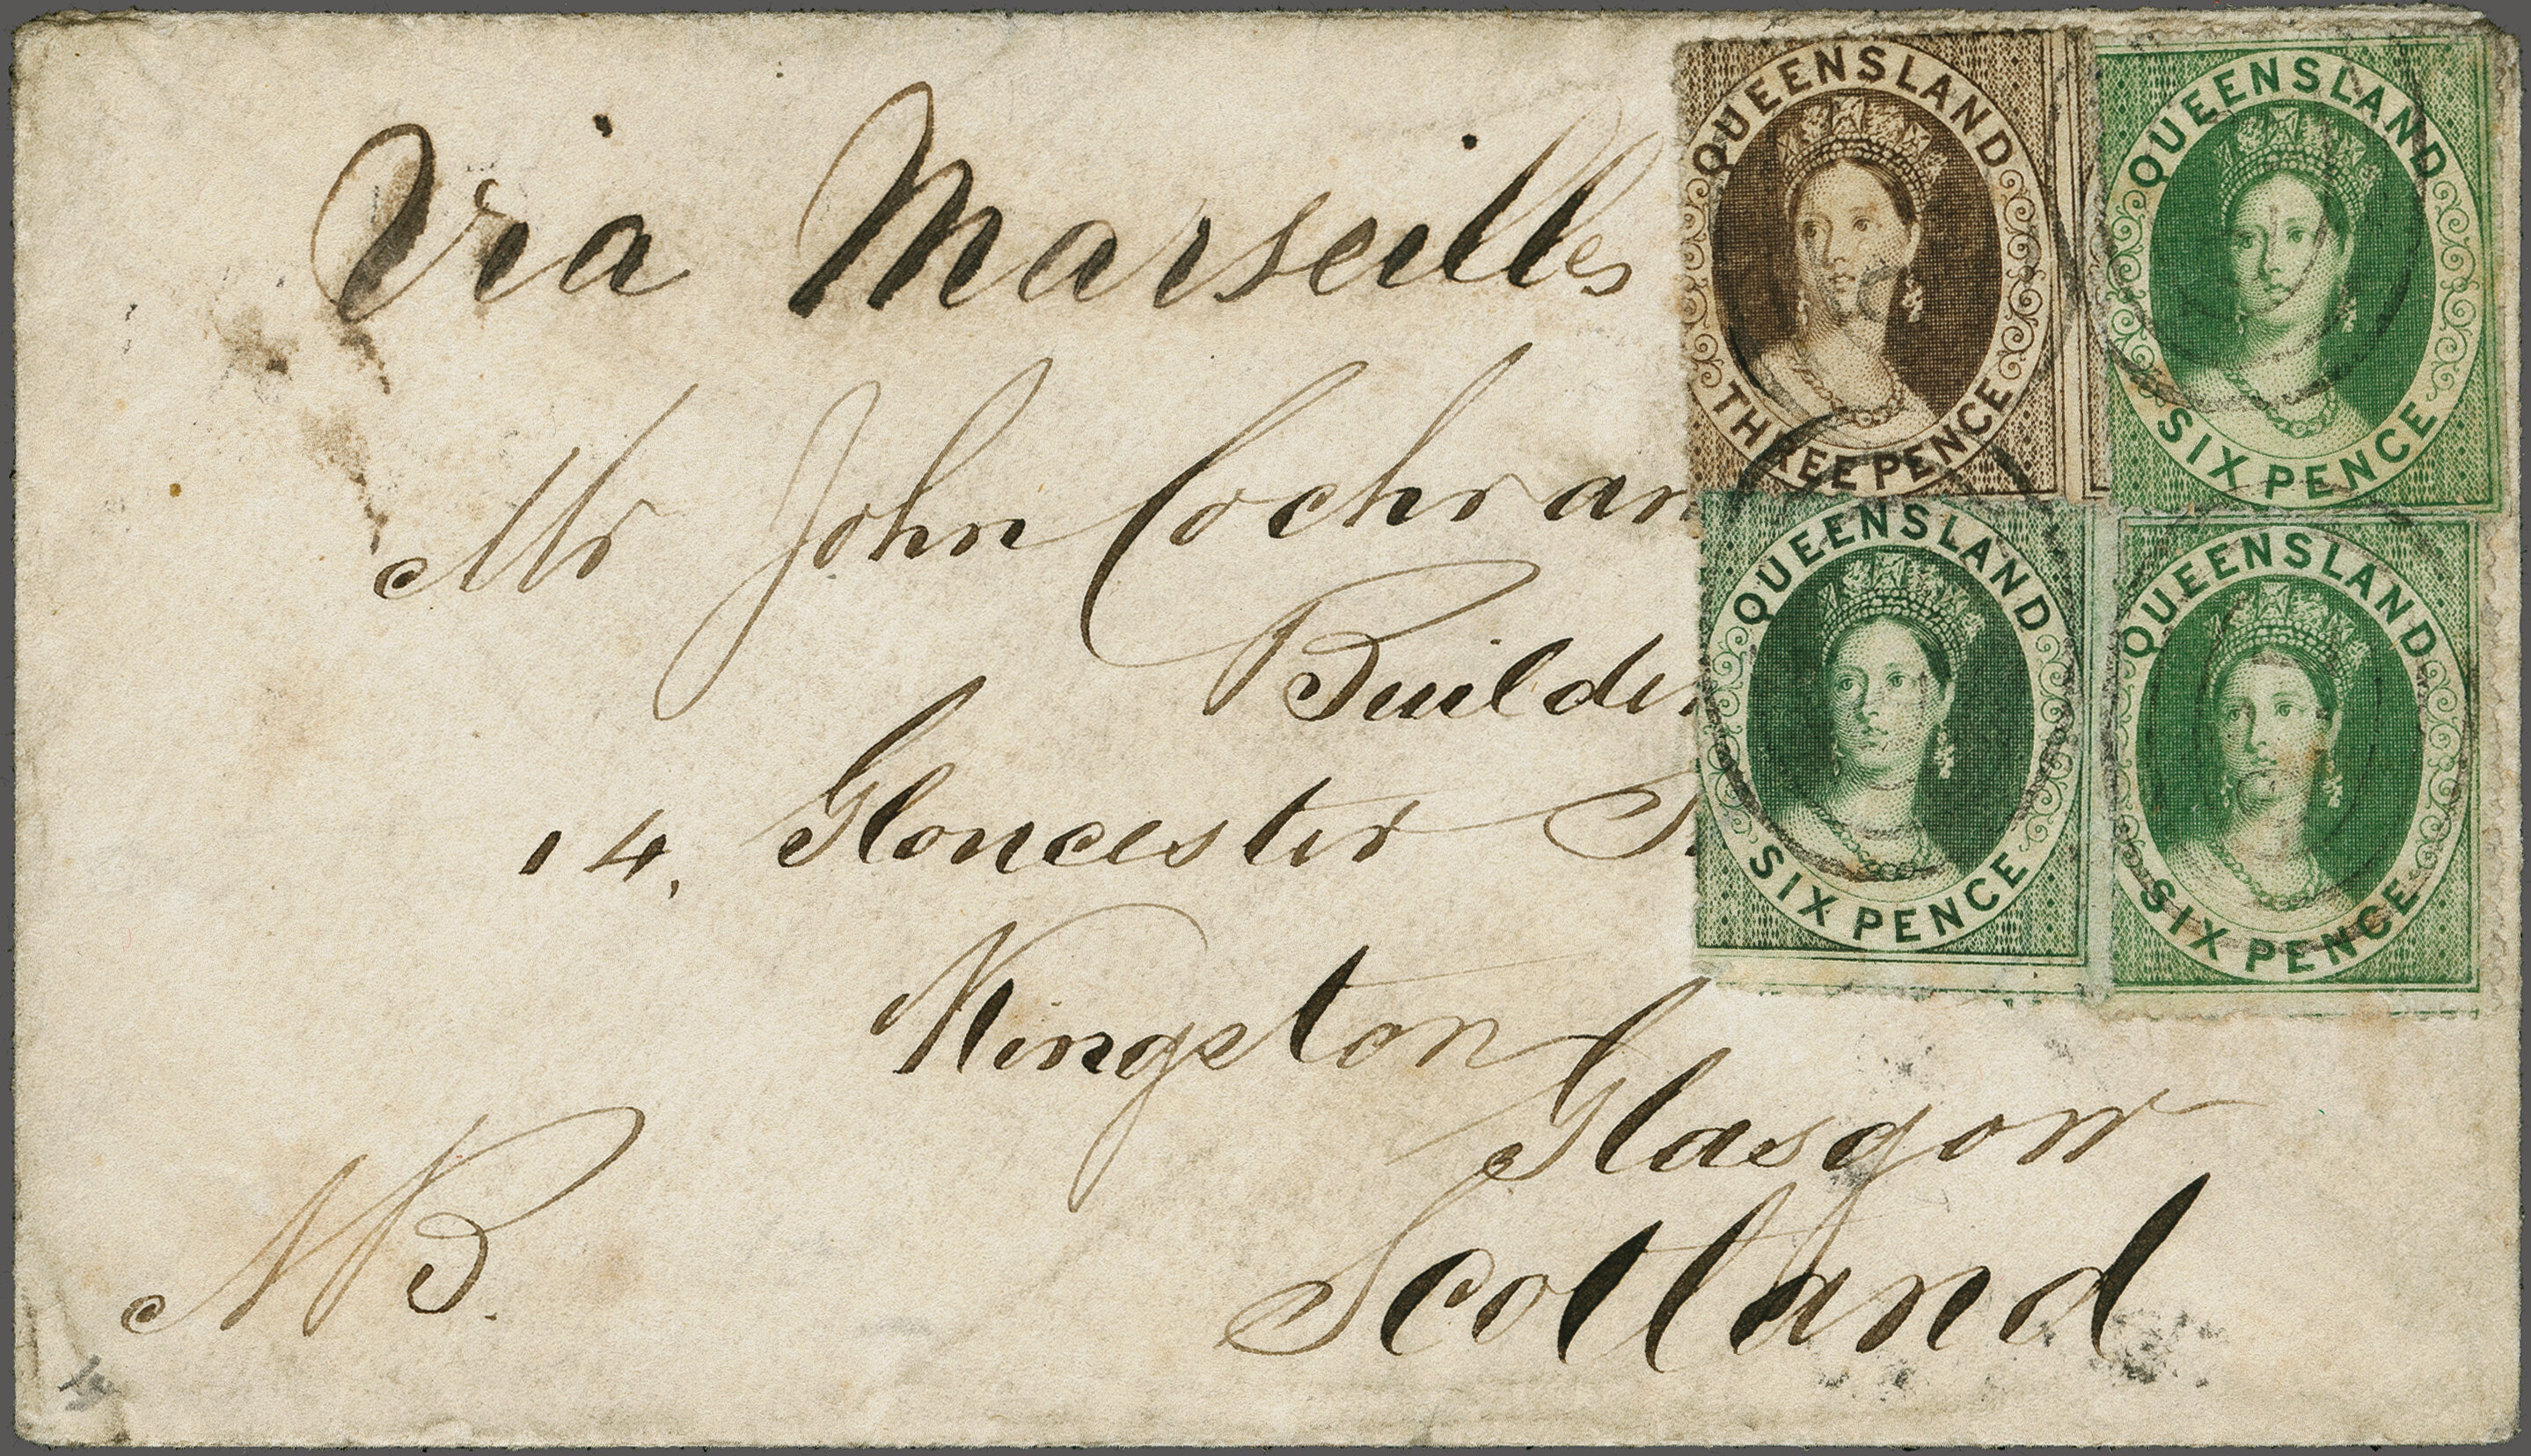 Via Marseilles
Mr John Cochran
Builder
14, Gloucester
Kingston
Glasgow
Scotland
NB.
QUEENSLAND
THREE PENCE
QUEENSLAND
SIX PENCE
QUEENSLAND
SIX PENCE
QUEENSLAND
SIX PENCE